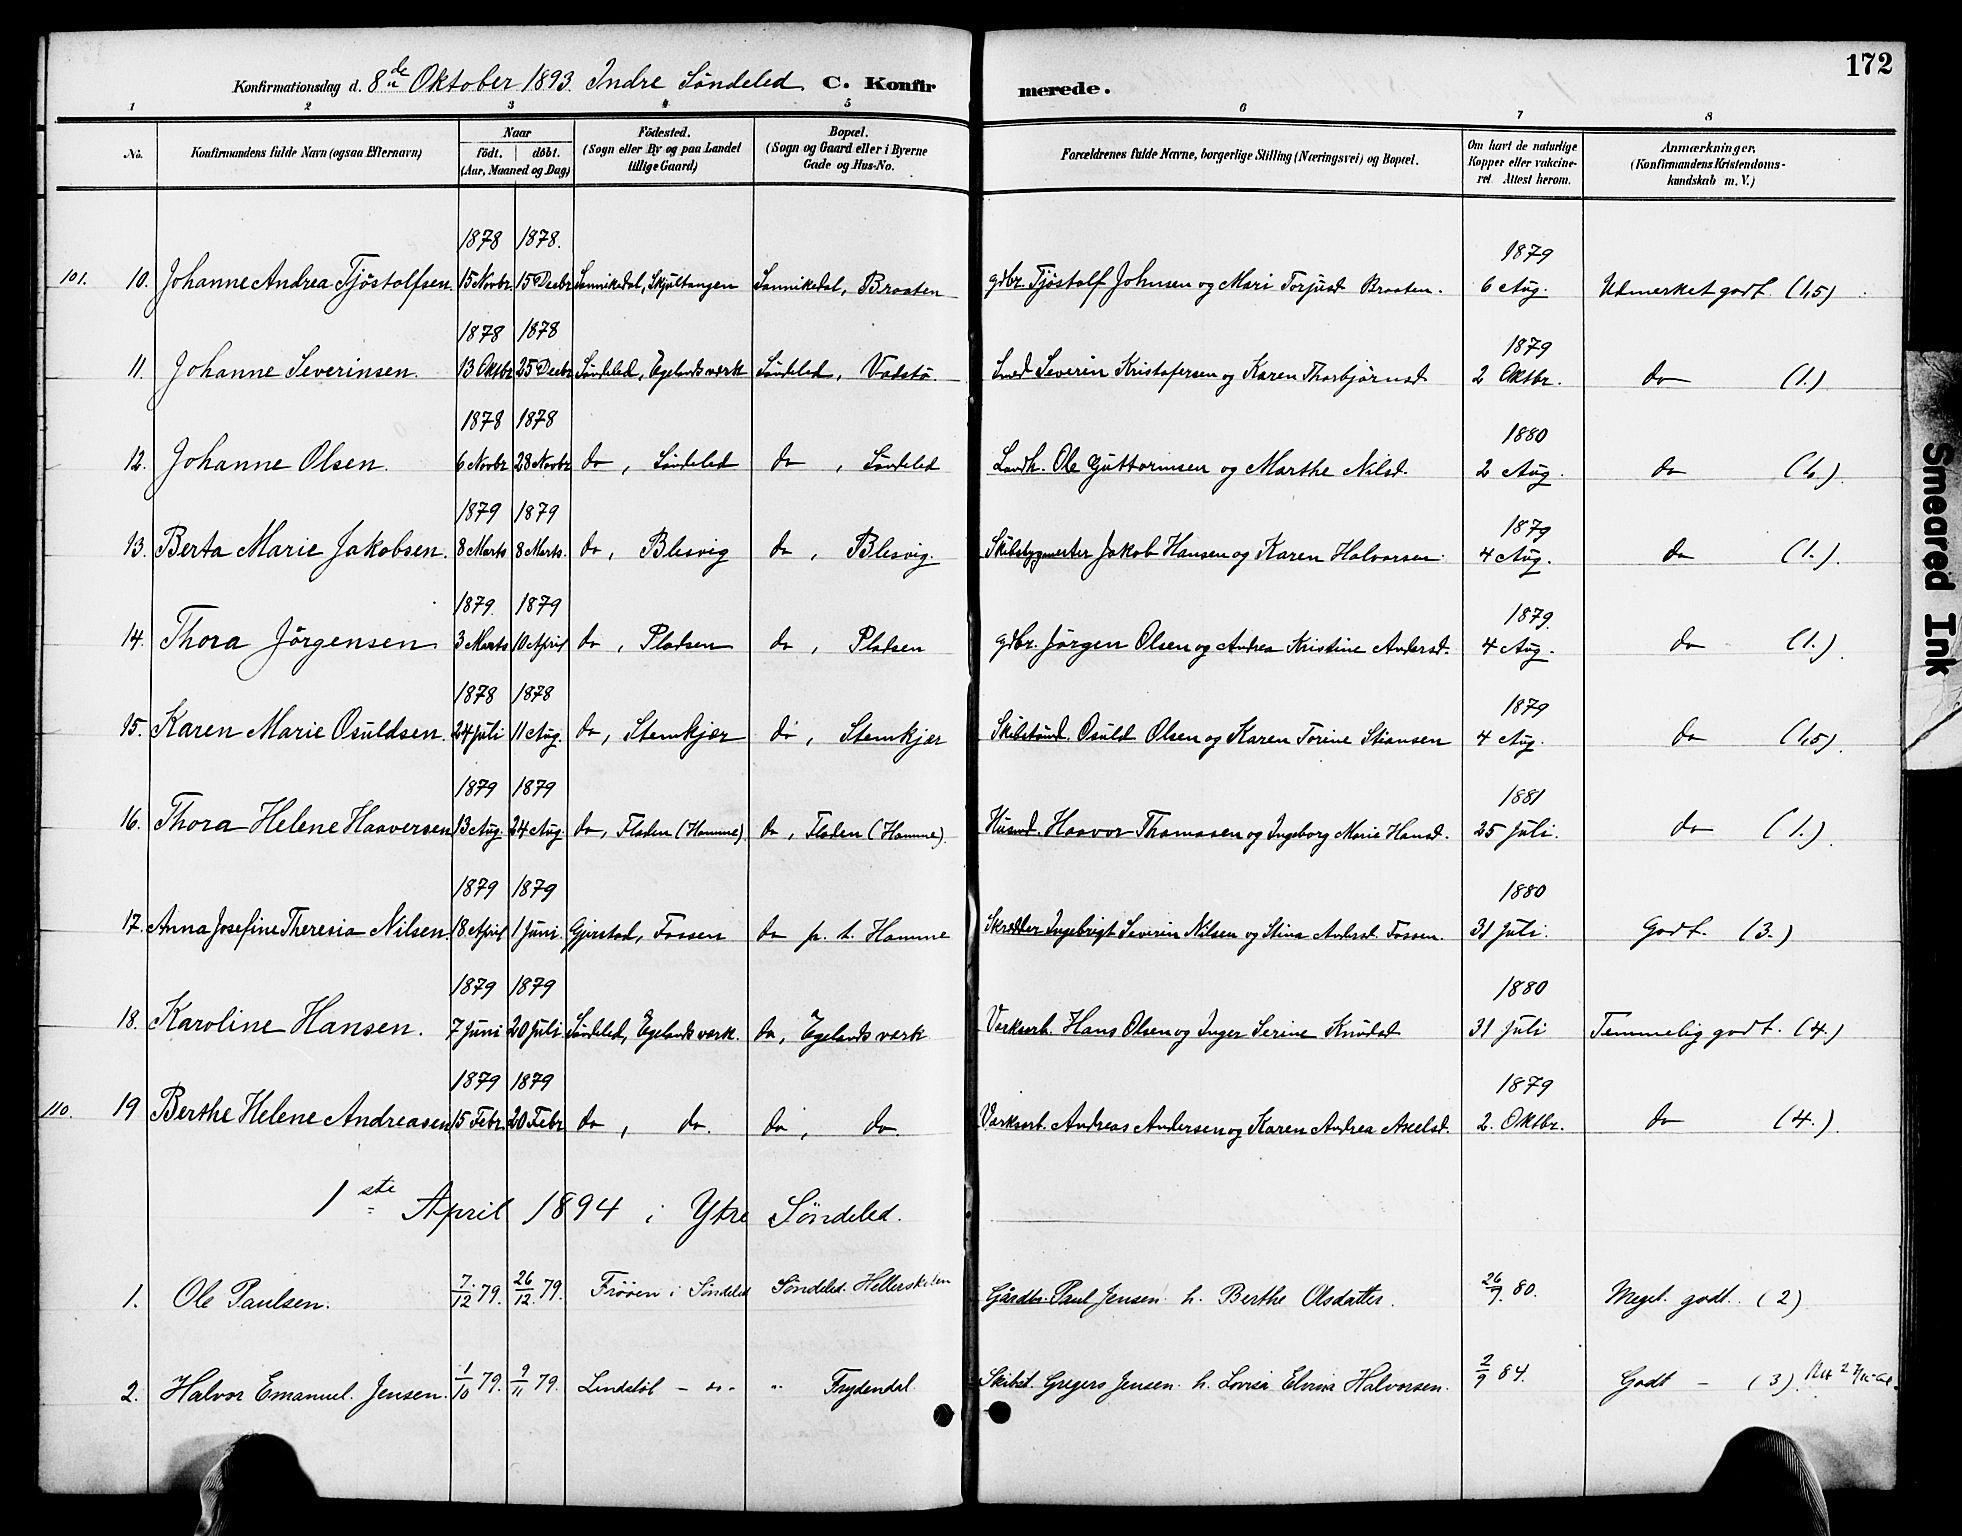 172
Konfirmationsdag d. 8de Oktober 1893. Indre Søndeled C. Konfirmerede.
1 2 3 4 5 6 7 8
No.
Konfirmandens fulde Navn (ogsaa Efternavn)
Naar
födt. | døbt.
(Aar, Maaned og Dag)
Födested.
(Sogn eller By og paa Landet
tillige Gaard)
Bopæl.
(Sogn og Gaard eller i Byerne
Gade og Hus-No.
Forældrenes fulde Navne, borgerlige Stilling (Næringsvei) og Bopæl.
Om havt de naturlige
Kopper eller vakcine-
ret. Attest herom.
Anmærkninger,
(Konfirmandens Kristendoms-
kundskab m. V.)
1878 1878. 1879
101. 10. Johanne Andrea Tjøstolfsen. 15 Novbr. 15 Decbr Sannikedal, Skjultangen Sannikedal, Braaten gdbr. Tjøstolf Johnsen og Mari Torjusd. Braaten. 6 Aug. Udmerket godt. (1,5)
1878 1878 1879
11. Johanne Severinsen. 13 Oktbr 25 Decbr Søndeled, Egelandsværk Søndeled, Vadstø. Smed Severin Kristofersen og Karen Thorbjørnsd. 2 Oktbr. do (1.)
1878 1878 1880
12. Johanne Olsen. 6 Novbr 28 Novbr do, Søndeled do, Søndeled Landh. Ole Guttormsen og Marthe Nilsd. 2 Aug. do
1879 1879 1879
13. Berta Marie Jakobsen. 8 Marts 8 Marts. do, Blesvig do, Blesvig. Skibsbygmester Jakob Hansen og Karen Halvorsen. 4 Aug. do (1.)
1879. 1879 1879.
14. Thora Jørgensen 3 Marts 10 April do, Pladsen do, Pladsen gdbr. Jørgen Olsen og Andrea Kristine Andersd. 4 Aug. do (1.)
1878 1878 1879
15. Karen Marie Osuldsen. 24 juli 11 Aug. do, Stemkjær do, Stemkjær Skibstømd. Osuld Olsen og Karen Torine Stiansen 4 Aug. do (1,5)
1879 1879 1881
16. Thora Helene Haaversen 13 Aug. 24 Aug. do, Fladen (Hamme). do, Fladen (Hamme). Husmd. Haavor Thomasen og Ingeborg Marie Hansd. 25 juli. do (1.)
1879 1879 1880
17. Anna Josefine Theresia Nilsen. 18 April 1 Juni. Gjerstad, Fossen do p. t. Hamme Skrædder Ingebrigt Severin Nilsen og Stina Andersd. Fossen. 31 juli. Godt. (3.)
1879 1879 1880
18. Karoline Hansen. 7 Juni 20 Juli. Søndeled, Egelandsværk. do, Egelandsværk Værksarb. Hans Olsen og Inger Serine Knudsd. 31 juli Temmelig godt. (4.)
1879 1879 1879
110. 19 Berthe Helene Andreasen 15 Febr. 20 Febr do, do. do, do. Værksarb. Andreas Andersen og Karen Andrea Axelsd. 2. Oktbr. do (4.)
1ste April 1894 i Ytre Søndeled.
1. Ole Paulsen. 7/12 79. 26/12. 79. Frøøen i Søndeled Søndeled. Hellerskilen Gårdbr. Paul Jensen h. Berthe Olsdatter. 26/9. 80. Meget godt. (2)
2. Halvor Emanuel Jensen. 1/10 79. 9/11 79. Lindeløb - do - " Frydendal. Skibst. Gregers Jensen h. Lovisa Elvina Halvorsen. 2/9 84. Godt - (3)
Smeared Ink